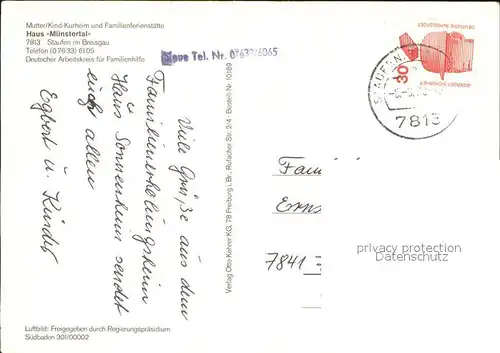 Mutter/Kind-Kurheim und Familienferienstätte
Haus »Münstertal«
7813 Staufen im Breisgau
Telefon (07633) 6105
Deutscher Arbeitskreis für Familienhilfe
Neue Tel. Nr. 07633/6065
Viele Grüße aus dem
Familienerholungsheim
Haus Sonnenheim sendet
euch allen
Egbert u. Kinder
Verlag Otto Kehrer KG, 78 Freiburg i. Br., Rufacher Str. 2/4 · Bestell-Nr. 10189
DEUTSCHE BUNDESPOST
30
JEDERZEIT SICHERHEIT
STAUFEN
7813
Fam
Erns
7841
privacy protection
watermark
Luftbild: Freigegeben durch Regierungspräsidium
Südbaden 301/00002